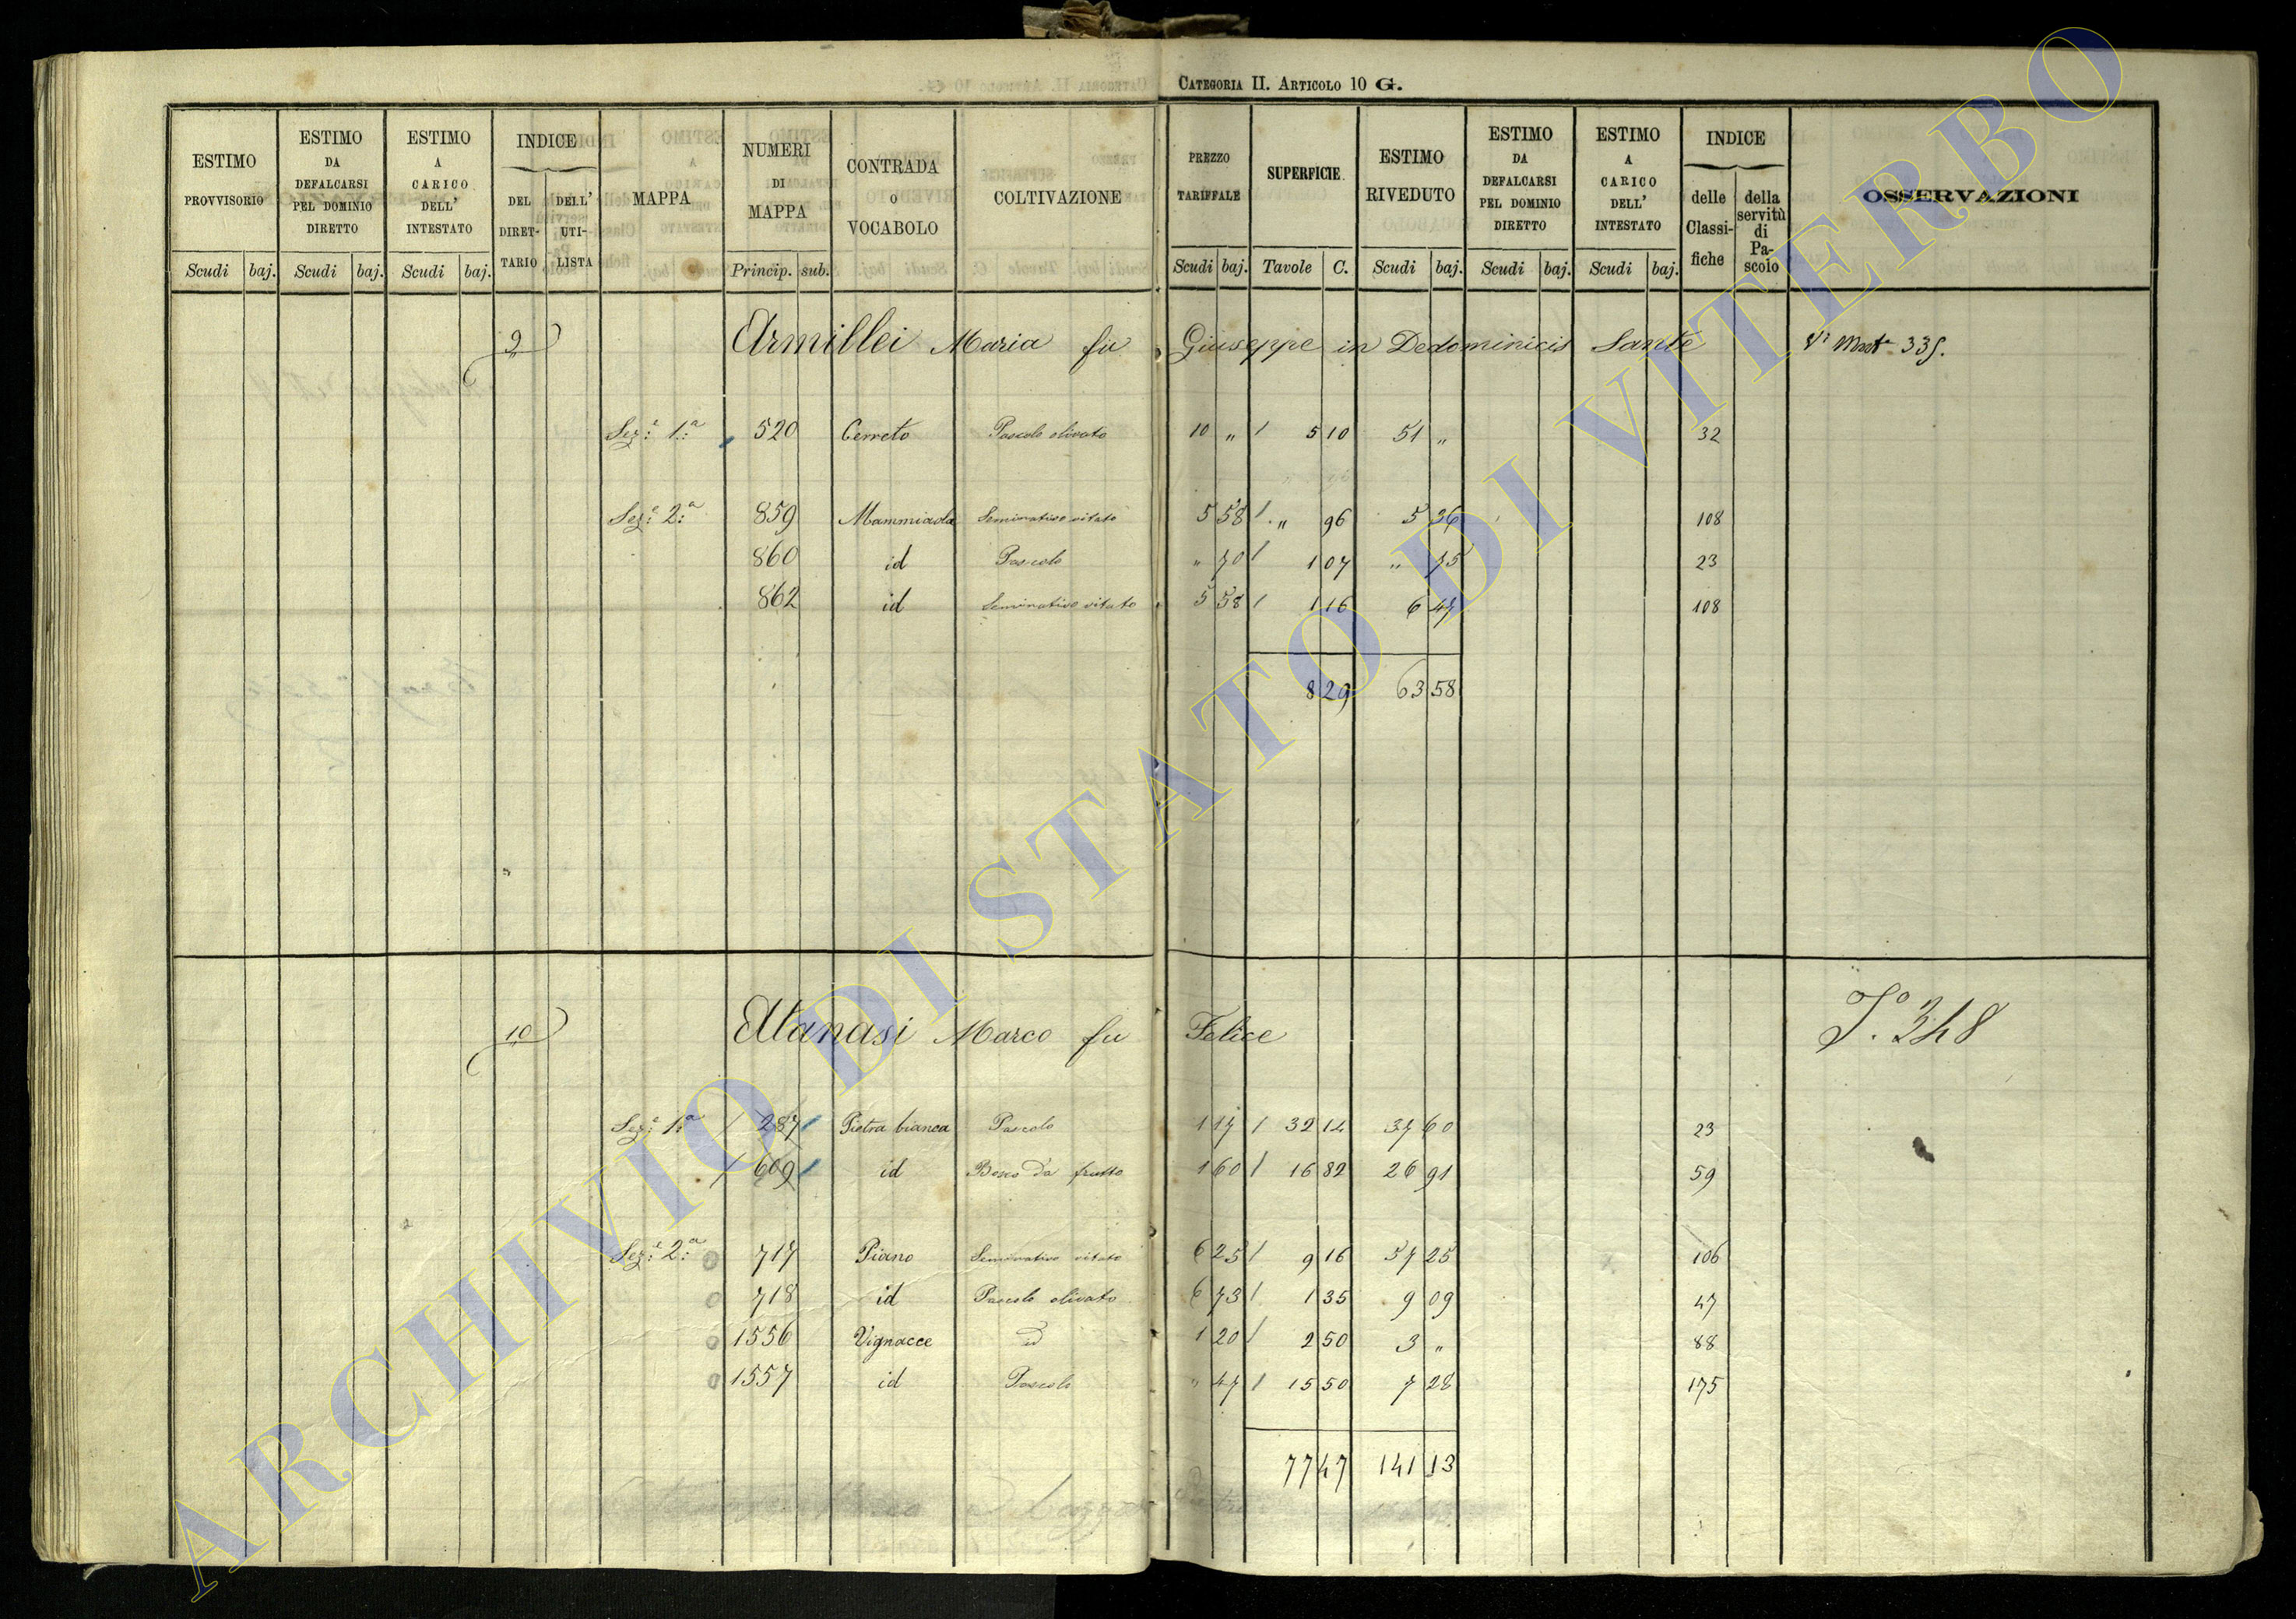 CATEGORIA II. ARTICOLO 10 G.
ESTIMO PROVVISORIO Scudi baj.
ESTIMO DA DEFALCARSI PEL DOMINIO DIRETTO Scudi baj.
ESTIMO A CARICO DELL' INTESTATO Scudi baj.
INDICE DEL DIRETTARIO DELL' UTILISTA
MAPPA
NUMERI DI MAPPA Princip. sub.
CONTRADA O VOCABOLO
COLTIVAZIONE
PREZZO TARIFFALE Scudi baj.
SUPERFICIE Tavole C.
ESTIMO RIVEDUTO Scudi baj.
ESTIMO DA DEFALCARSI PEL DOMINIO DIRETTO Scudi baj.
ESTIMO A CARICO DELL' INTESTATO Scudi baj.
INDICE delle Classifiche della servitù di Pascolo
OSSERVAZIONI
9 Armillei Maria fu Giuseppe in Dedominicis Sante 335.
Sez.e 1.a 520 Cerreto Pascolo olivato 10 „ / 5 10 51 „ 32
Sez.e 2.a 859 Mammiaola Seminativo vitato 5 58 / „ 96 5 36 108
860 id Pascolo „ 70 / 1 07 „ 75 23
862 id Seminativo vitato 5 58 / 1 16 6 47 108
8 29 63 58
10 Atanasi Marco fu Felice 348
Sez.e 1.a / 287 / Pietra bianca Pascolo 1 17 / 32 14 37 60 23
/ 609 / id Bosco da frutto 1 60 / 16 82 26 91 59
Sez.e 2.a 717 Piano Seminativo vitato 6 25 / 9 16 57 25 106
718 id Pascolo olivato 6 73 / 1 35 9 09 47
1556 Vignacce id 1 20 / 2 50 3 „ 88
1557 id Pascolo „ 47 / 15 50 7 28 175
77 47 141 13
ARCHIVIO DI STATO DI VITERBO